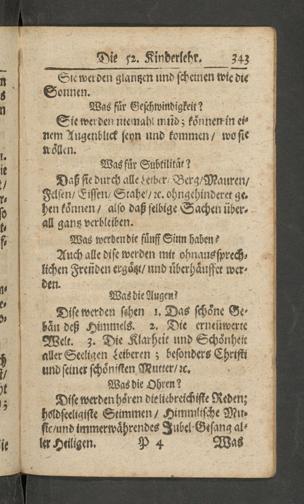 Die 52. Kinderlehr. 343
Sie werden glantzen und scheinen wie die
Sonnen.
Was für Geschwindigkeit?
Sie werden niemahl müd; können in ei-
nem Augenblick seyn und kommen/ wo sie
wöllen.
Was für Subtilität?
Daß sie durch alle Leiber/ Berg/ Mauren/
Felsen/ Eissen/ Stahel/ ꝛc. ohngehinderet ge-
hen können/ also daß selbige Sachen über-
all gantz verbleiben.
Was werden die fünff Sinn haben?
Auch alle dise werden mit ohnaussprech-
lichen Freüden ergötzt/ und überhäuffet wer-
den.
Was die Augen?
Dise werden sehen 1. Das schöne Ge-
bäu deß Himmels. 2. Die erneüwerte
Welt. 3. Die Klarheit und Schönheit
aller Seeligen Leiberen; besonders Christi
und seiner schönisten Mutter/ ꝛc.
Was die Ohren?
Dise werden hören die liebreichiste Reden;
holdseeligiste Stimmen/ Himmlische Mu-
sic/ und immerwährendes Jubel-Gesang al-
ler Heiligen. P 4 Was